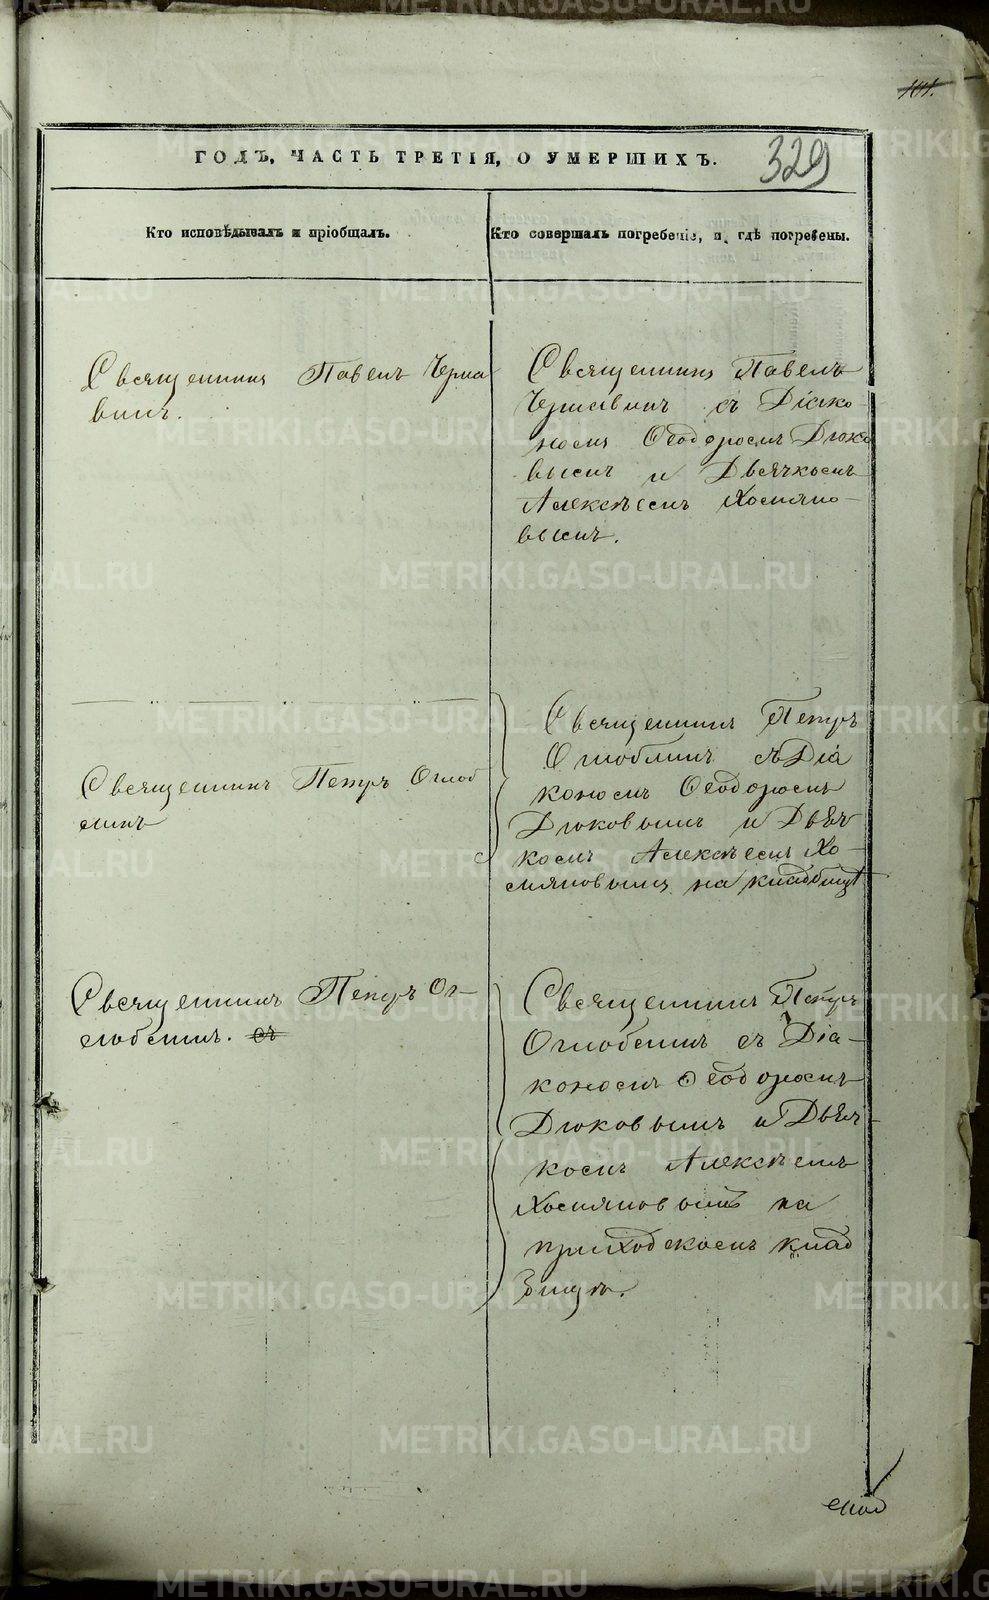 101.
329
ГОДЪ, ЧАСТЬ ТРЕТІЯ, О УМЕРШИХЪ.
Кто исповѣдывалъ и пріобщалъ.
Кто совершалъ погребеніе, и гдѣ погребены.
Священникъ Павелъ Черна
винъ.
Священникъ Павелъ
Чернавинъ съ Діако-
номъ Ѳеодоромъ Дюко
вымъ и Дьячкомъ
Алексѣемъ Хомяко-
вымъ.
Священникъ Петръ Оглоб
линъ
Священникъ Петръ
Оглоблинъ съ Діа
кономъ Ѳеодоромъ
Дюковымъ и Дьяч
комъ Алексѣемъ Хо-
мяковымъ на кладбищѣ
Священникъ Петръ Ог-
лоблинъ. съ
Священникъ Петръ
Оглоблинъ съ Діа-
кономъ Ѳеодоромъ
Дюковымъ и Дьяч-
комъ Алексѣемъ
Хомяковымъ на
приходскомъ клад
бищѣ.
METRIKI.GASO-URAL.RU